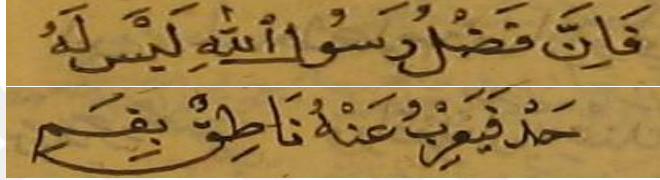 فَاِنَّ فَضْلَ رَسُولِ اللّٰهِ لَيْسَ لَهُ
حَدٌّ فَيُعْرِبُ عَنْهُ نَاطِقٌ بِفَمِ